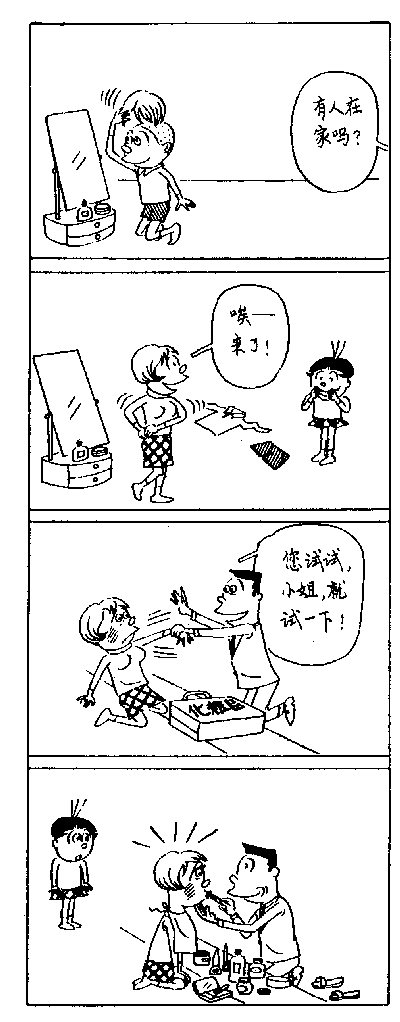 有人在
家吗？
唉——
来了！
您试试，
小姐，就
试一下！
化粧品